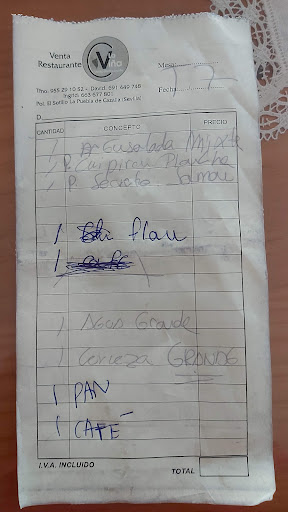 Venta
Restaurante
Mesa: 17
Fecha
Tfno: 955 29 10 52 - David: 691 449 748
Ingrid: 663 677 801
Pol. El Sotillo La Puebla de Cazalla (Sevilla)
D.
CANTIDAD CONCEPTO PRECIO
1 Ensalada Mixta
1 P. Plancha
1 P. Secreto
1 flan
1
1 Agua Grande
1 Cerveza GRANDE
1 PAN
1 CAFÉ
I.V.A. INCLUIDO TOTAL